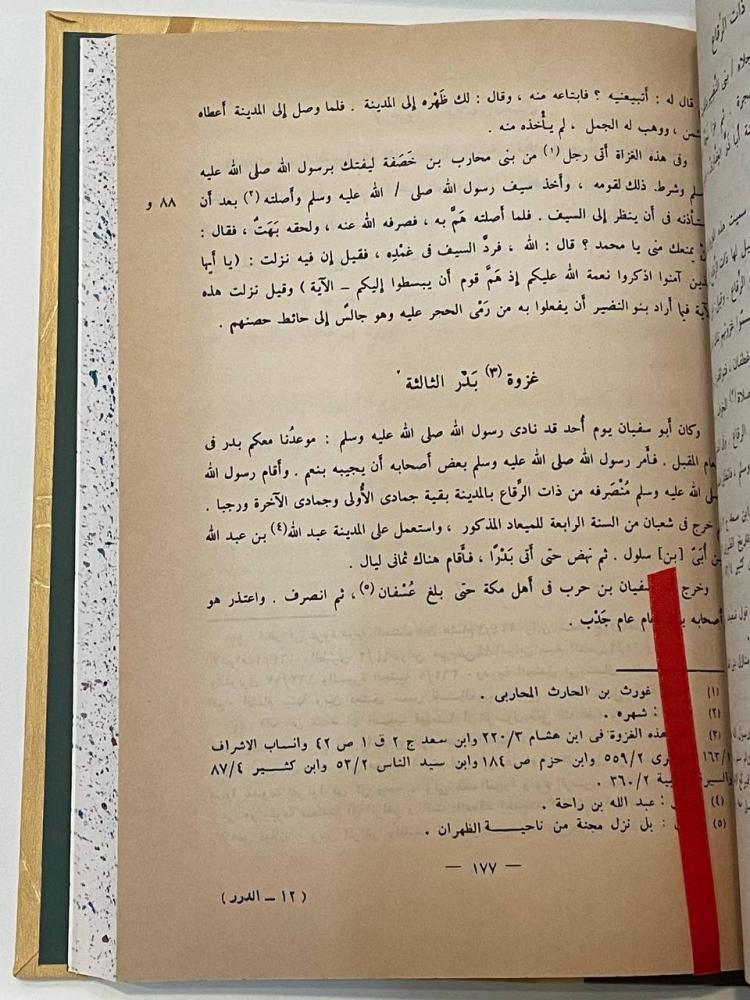 قال له : أتبيعنيه ؟ فابتاعه منه ، وقال : لك ظَهْره إلى المدينة . فلما وصل إلى المدينة أعطاه
، ووهب له الجمل ، لم يأْخذه منه .
وفى هذه الغزاة أتى رجل (١) من بنى محارب بن خَصَفة ليفتك برسول الله صلى الله عليه
وشرط. ذلك لقومه ، وأخذ سيف رسول الله صلى / الله عليه وسلم وأصلته (٢) بعد أن
٨٨ و
فى أن ينظر إلى السيف . فلما أصلته هَمَّ به ، فصرفه الله عنه ، ولحقه بَهَتٌ ، فقال :
يمنعك منى يا محمد ؟ قال : الله ، فردَّ السيف فى غمْدِه ، فقيل إن فيه نزلت : (يا أيها
آمنوا اذكروا نعمة الله عليكم إذ هَمَّ قوم أن يبسطوا إليكم – الآية ) وقيل نزلت هذه
فيما أراد بنو النضير أن يفعلوا به من رَمْى الحجر عليه وهو جالسٌ إلى حائط حصنهم .
غزوة (٣) بَدْر الثالثة
وكان أبو سفيان يوم أُحد قد نادى رسول الله صلى الله عليه وسلم : موعدُنا معكم بدر فى
المقبل . فأَمر رسول الله صلى الله عليه وسلم بعض أصحابه أن يجيبه بنعم . وأقام رسول الله
الله عليه وسلم مُنْصَرفه من ذات الرِّقاع بالمدينة بقية جمادى الأُولى وجمادى الآخرة ورجبا .
خرج فى شعبان من السنة الرابعة للميعاد المذكور ، واستعمل على المدينة عبد الله(٤) بن عبد الله
أُبَىّ [بن] سلول . ثم نهض حتى أتى بَدْرًا ، فأَقام هناك ثمانى ليال .
وخرج سفيان بن حرب فى أهل مكة حتى بلغ عُسْفان (٥) ، ثم انصرف . واعتذر هو
أصحابه عام جَدْب .
(١) غورث بن الحارث المحاربى .
(٢) : شهره .
(٣) هذه الغزوة فى ابن هشام ٢٢٠/٣ وابن سعد ج ٢ ق ١ ص ٤٢ وانساب الاشراف
٥٥٩/٢ وابن حزم ص ١٨٤ وابن سيد الناس ٥٣/٢ وابن كثير ٨٧/٤
٣٦٠/٢ .
(٤) : عبد الله بن راحة .
(٥) : بل نزل مجنة من ناحية الظهران .
— ١٧٧ —
( ١٢ – الدرر )